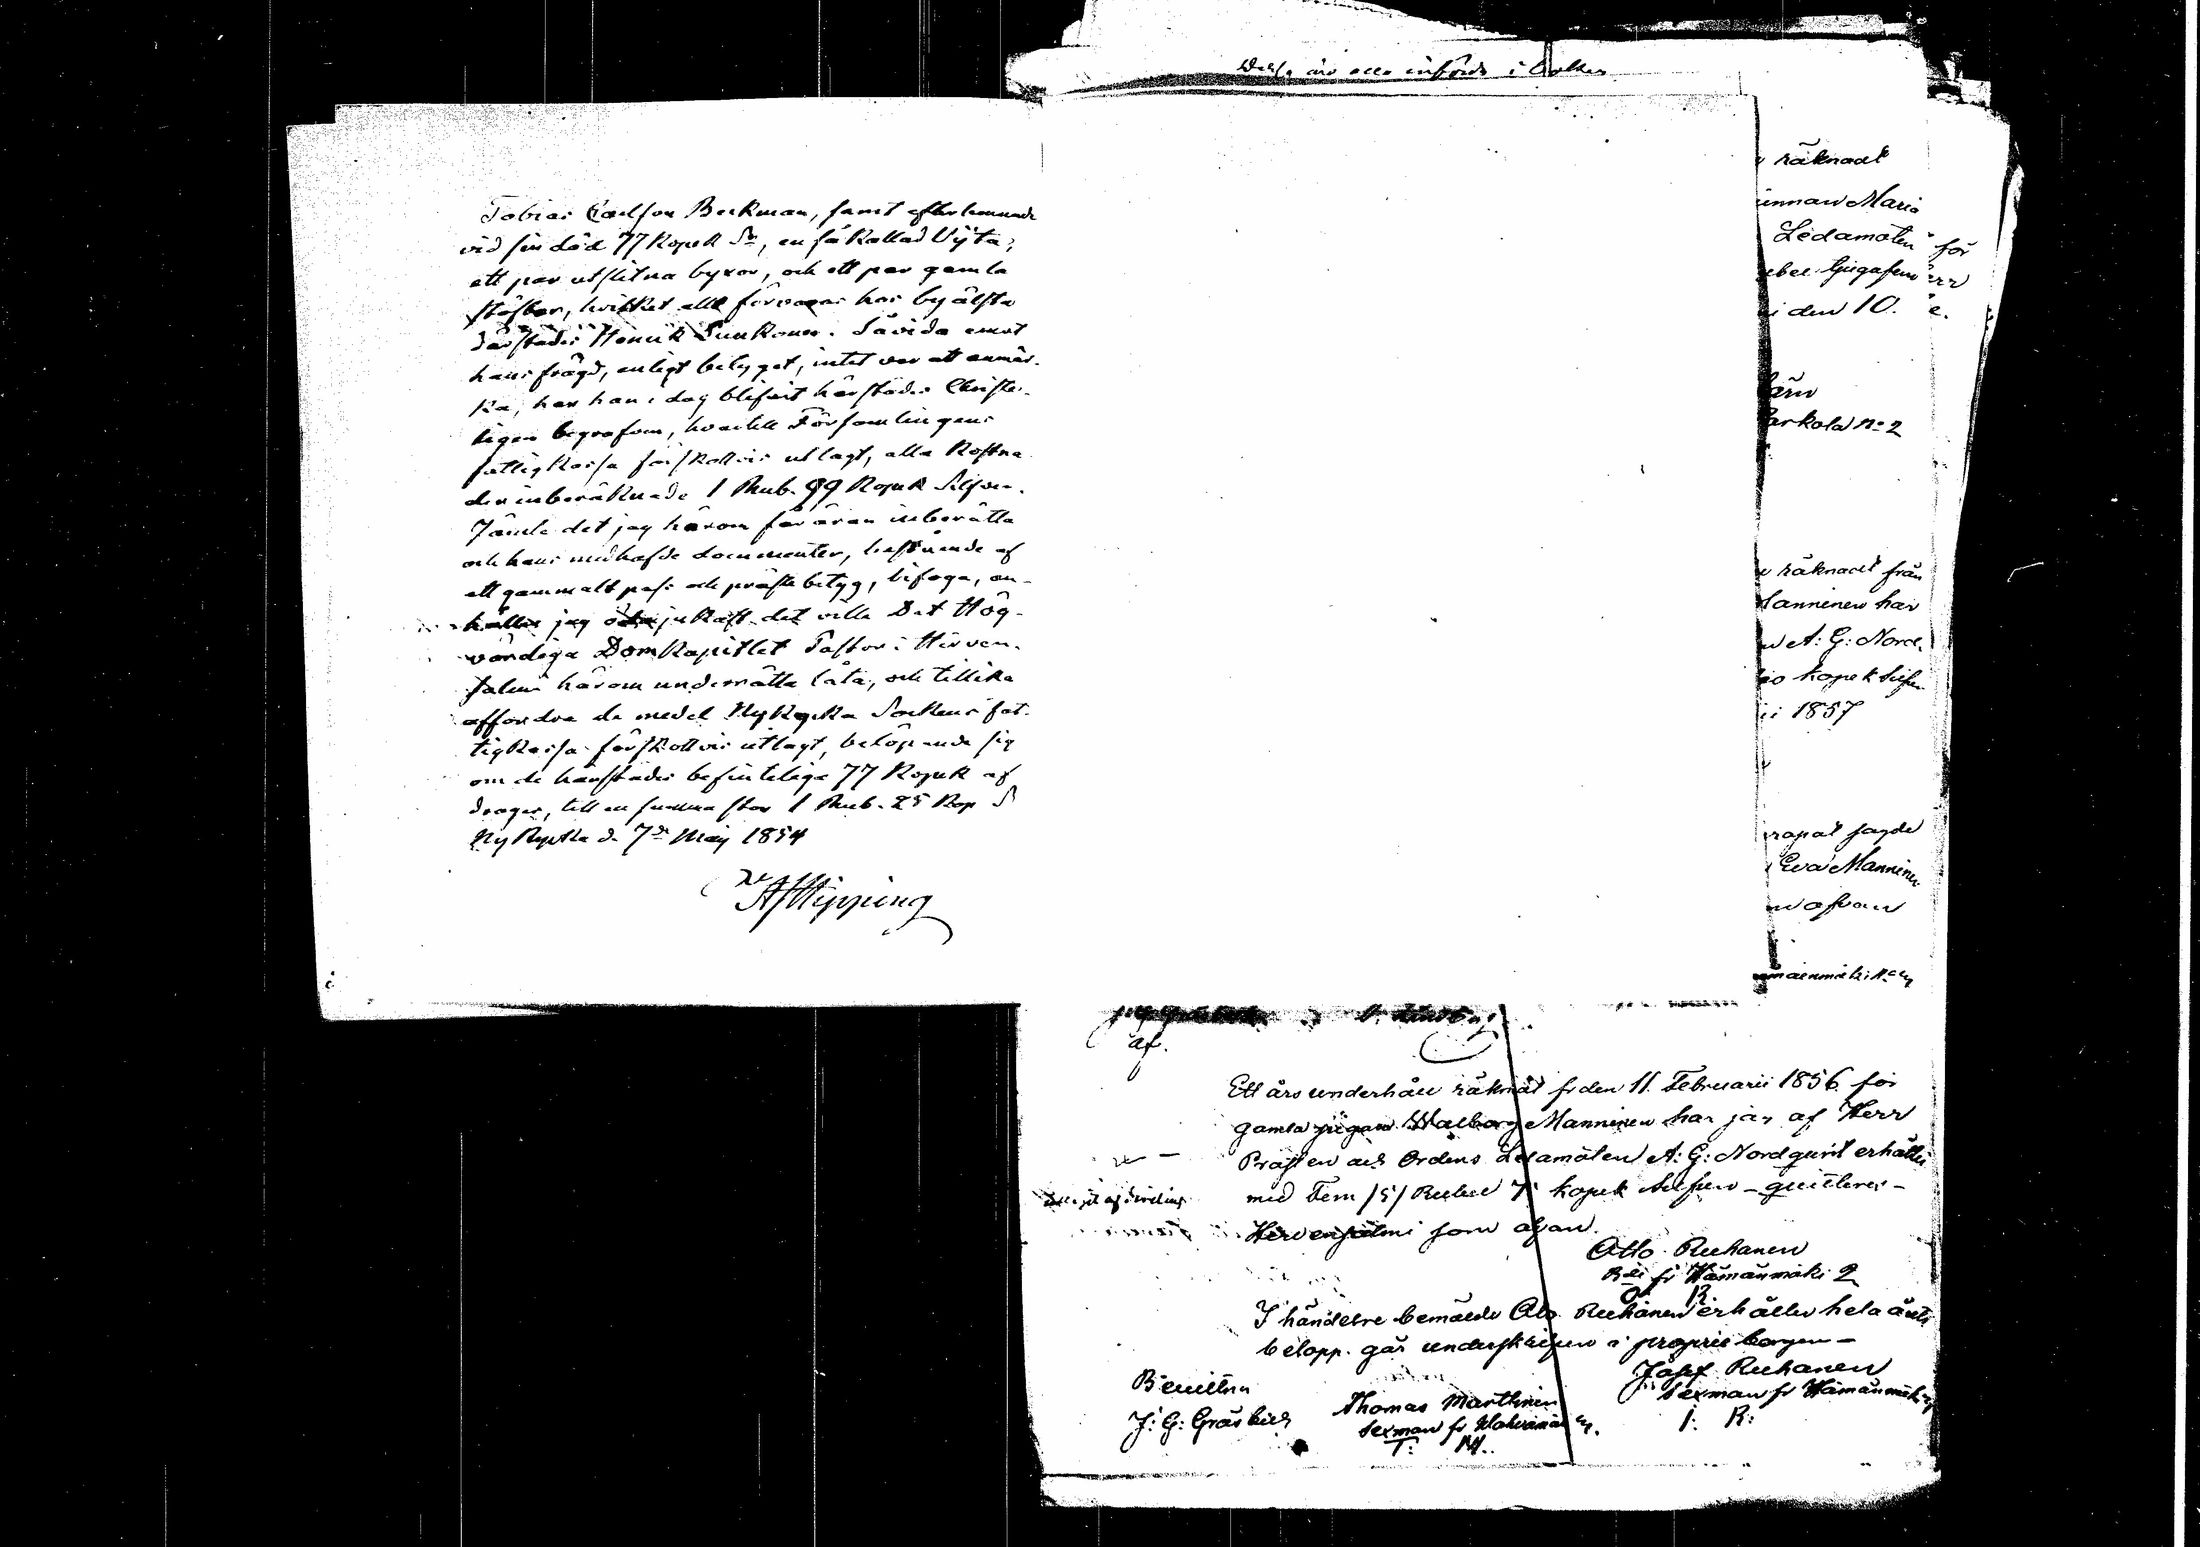 Dessa äro alla införda i boken
Tobias Carlson Beckman, samt efterlemnade
vid sin död 77 Kopek Sr, en så kallad Vÿta,
ett par utslitna byxor, och ett par gamla
stöflar, hvilket allt förvaras hos byålsta
härstädes Henrik Suukonen. Såvida emot
hans frägd, enligt betyget, intet var att anmär-
ka, har han i dag blifvit härstädes Christe-
ligen begrafven, hvartill Församlingens
fattigkassa förskottvis utlagt, alla kostna
der inberäknade 1 Rub. 99 Kopek Silfver.
Jämte det jag härom får äran inberätta
och hans medhafde documenter, bestående af
ett gammalt pass och prästbetyg, bifoga, an-
håller jag ödmjukast det ville Det Hög-
vördiga Domkapitlet Pastor i Hirven-
salmi härom underrätta låta, och tillika
affordra de medel Nykyrka Sockens fat-
tigkassa förskottvis utlagt, belöpande sig
om de härstädes befintliga 77 Kopek af
drages, till en summa stor 1 Rub. 25 Kop S
Nykyrka d. 7de Maij 1854
AJHipping
räknadt
innan Maria
Ledamoten för
i den 10.
Parkola No 2
räknadt från
Manninen har
A: G: Nord
kopek Silfver
1857
Eva Manninen
ofvan
af.
Ett års underhåll räknat fr den 11. Februarii 1856 för
gamla pigan Walborg Manninen har jag af Herr
Prosten och Ordens Ledamoten A: G: Nordqvist erhållit
med Fem /5/ Rubel 7 kopek Silfver - quitteres -
Hirvensalmi som ofvan.
Otto Ruhanen
Bde fr Hämänmäki 2
O. R.
I händelse bemälde Otto Ruhanen erhåller hela års
belopp. går underskrifven i proprie borgen -
Josef Ruhanen
Sexman fr Hämänmäki
J: R:
Bevittna
J: G: Gråsbeck
Thomas Marttinen
Sexman fr
T: M.